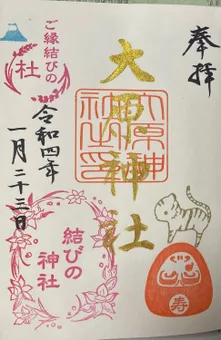 奉拝
大原神社
令和四年
一月二十三日
ご縁結びの
社
結びの
神社
寿